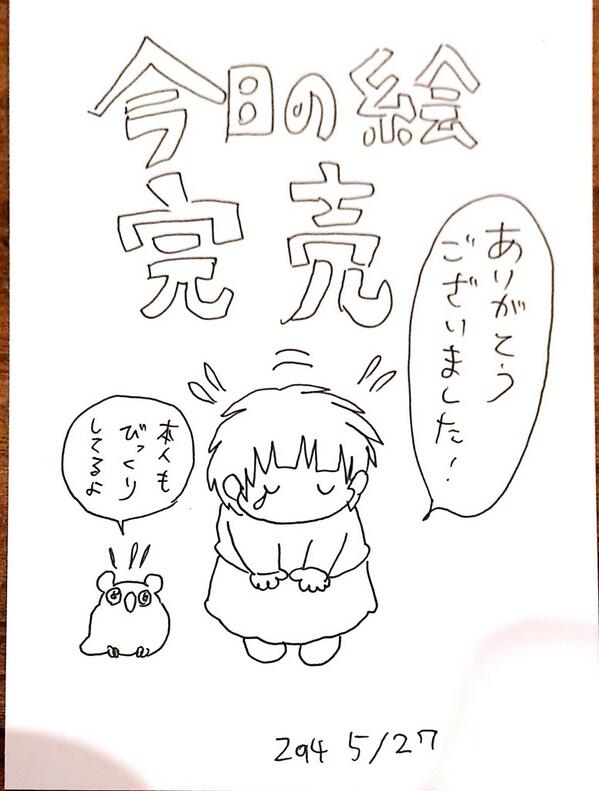 今日の絵
完売
ありがとう
ございました!
本人も
びっくり
してるよ
294 5/27